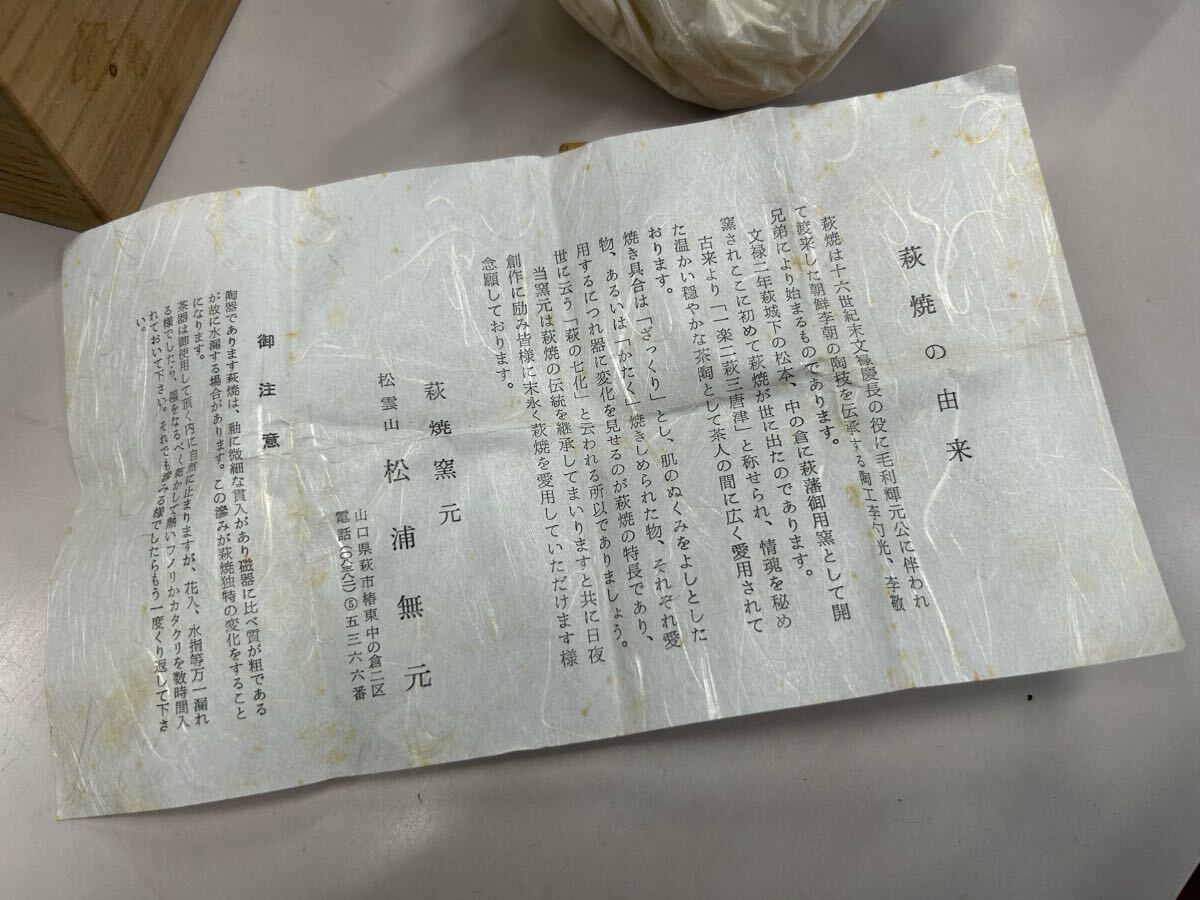 萩焼の由来
萩焼は十六世紀末文禄慶長の役に毛利輝元公に伴われ
て渡来した朝鮮李朝の陶技を伝承する陶工李勺光、李敬
兄弟により始まるものであります。
文禄二年萩城下の松本、中の倉に萩藩御用窯として開
窯されここに初めて萩焼が世に出たのであります。
古来より「一楽二萩三唐津」と称せられ、情魂を秘め
た温かい穏やかな茶陶として茶人の間に広く愛用されて
おります。
焼き具合は「ざっくり」とし、肌のぬくみをよしとした
物、あるいは「かたく」焼きしめられた物、それぞれ愛
用するにつれ器に変化を見せるのが萩焼の特長であり、
世に云う「萩の七化」と云われる所以でありましょう。
当窯元は萩焼の伝統を継承してまいりますと共に日夜
創作に励み皆様に末永く萩焼を愛用していただけます様
念願しております。
萩焼窯元
松雲山 松浦無元
山口県萩市椿東中の倉二区
電話(〇八三八二)⑤五三六六番
御注意
陶器であります萩焼は、釉に微細な貫入があり磁器に比べ質が粗である
が故に水漏する場合があります。この滲みが萩焼独特の変化をすること
になります。
茶器は御使用して頂く内に自然に止まりますが、花入、水指等万一漏れ
る様でしたら、器をなるべく乾かして熱いフノリかカタクリを数時間入
れておいて下さい。それでも滲みる様でしたらもう一度くり返して下さ
い。